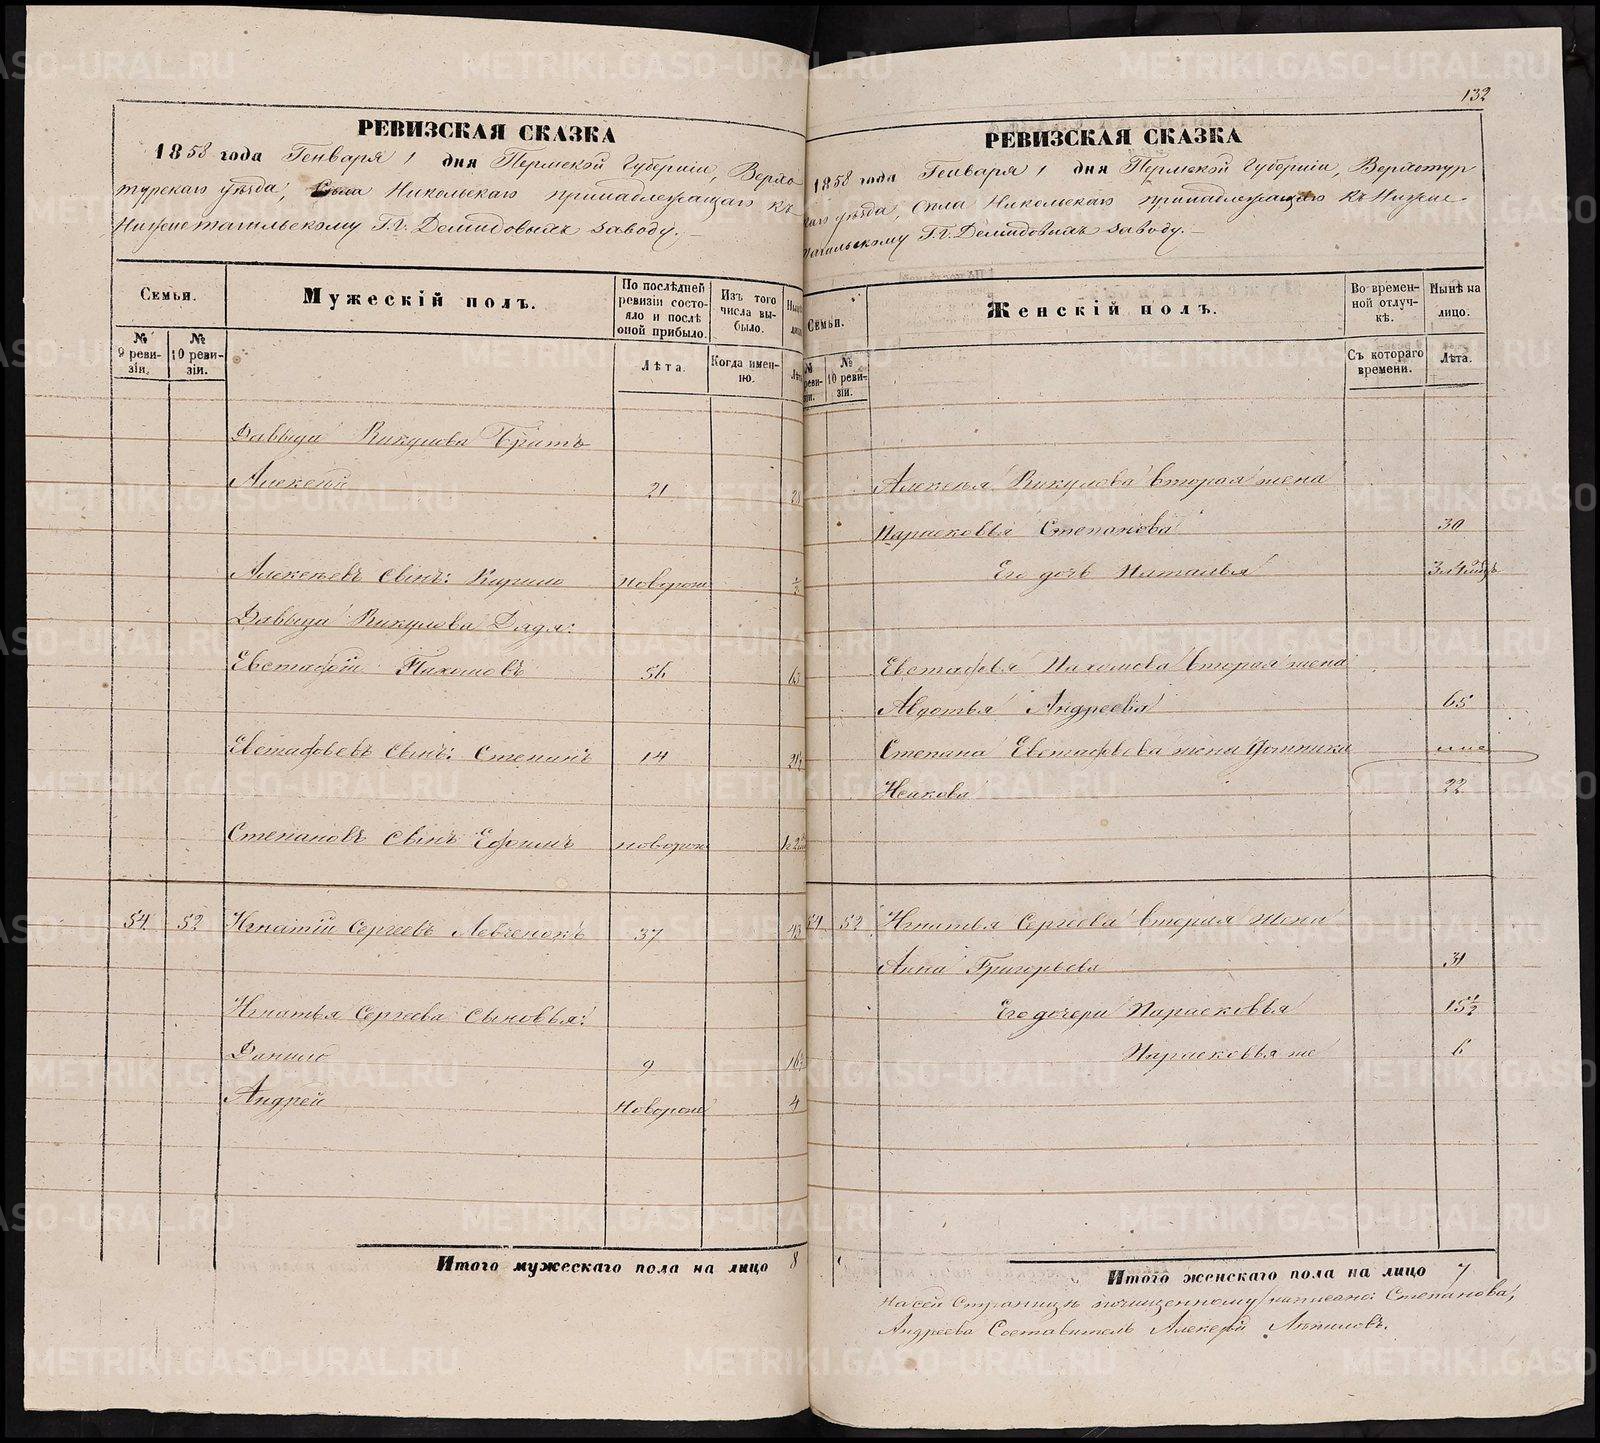 132
РЕВИЗСКАЯ СКАЗКА
1858 года Генваря 1 дня Пермской Губерніи, Верхо
турскаго уѣзда, Села Никольскаго принадлежащаго къ
Нижнетагильскому Г.г. Демидовыхъ заводу.
Семьи.
Мужескій полъ.
По послѣдней ревизіи состояло и послѣ оной прибыло.
Изъ того числа выбыло.
№ 9 ревизіи.
№ 10 ревизіи.
Лѣта.
Когда именно.
Давыда Викулова братъ
Алексей 21
Алексеевъ сынъ: Кирило новорож
Давыда Викулова Дядя:
Евстафій Тихоновъ 56
Евстафьевъ сынъ: Степанъ 14
Степановъ сынъ Ефимъ новорож
54 52 Игнатій Сергеевъ Левченокъ 37 45
Игнатья Сергеева сыновья:
Данило 9
Андрей новорож 4
Итого мужескаго пола на лицо 8
РЕВИЗСКАЯ СКАЗКА
1858 года Генваря 1 дня Пермской Губерніи, Верхотур
скаго уѣзда, Села Никольскаго принадлежащаго къ Нижне
тагильскому Г.г. Демидовыхъ заводу.
Семьи.
Женскій полъ.
Во временной отлучкѣ.
Нынѣ на лицо.
№ ревизіи.
№ 10 ревизіи.
Съ котораго времени.
Лѣта.
Алексея Викулова вторая жена
Парасковья Степанова 30
Его дочь Наталья
Евстафья Тихонова вторая жена
Авдотья Андреева 65
Степана Евстафьева жена
Исакова 22
54 52 Игнатья Сергеева вторая жена
Анна Григорьева 31
Его дочери Парасковья 15 1/2
Парасковья же 6
Итого женскаго пола на лицо 7
На сей страницѣ почищенному написано: Степанова,
Андреева Составитель Алексей
METRIKI.GASO-URAL.RU